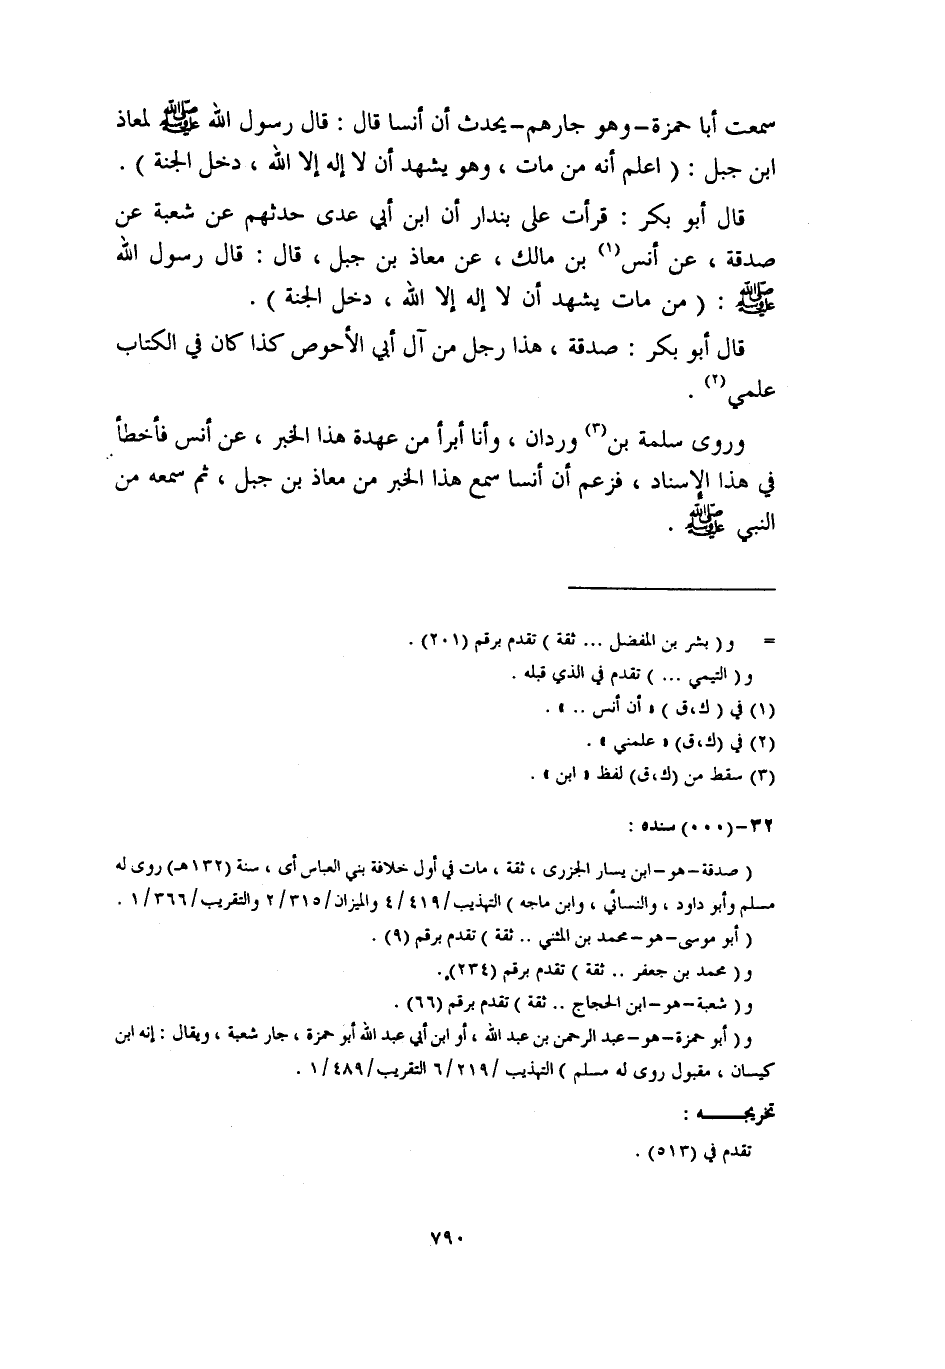 سمعت أبا حمزة–وهو جارهم–يحدث أن أنسا قال : قال رسول الله ﷺ لمعاذ
ابن جبل : ( اعلم أنه من مات ، وهو يشهد أن لا إله إلا الله ، دخل الجنة ) .
قال أبو بكر : قرأت على بندار أن ابن أبي عدى حدثهم عن شعبة عن
صدقة ، عن أنس(١) بن مالك ، عن معاذ بن جبل ، قال : قال رسول الله
ﷺ : ( من مات يشهد أن لا إله إلا الله ، دخل الجنة ) .
قال أبو بكر : صدقة ، هذا رجل من آل أبي الأحوص كذا كان في الكتاب
علمي(٢) .
وروى سلمة بن(٣) وردان ، وأنا أبرأ من عهدة هذا الخبر ، عن أنس فأخطأ
في هذا الإسناد ، فزعم أن أنسا سمع هذا الخبر من معاذ بن جبل ، ثم سمعه من
النبي ﷺ .
= و( بشر بن المفضل ... ثقة ) تقدم برقم (٢٠١) .
و( التيمي ... ) تقدم في الذي قبله .
(١) في ( ك،ق ) « أن أنس .. » .
(٢) في (ك،ق) « علمني » .
(٣) سقط من (ك،ق) لفظ « ابن » .
٣٢–(٠٠٠) سنده :
( صدقة–هو–ابن يسار الجزرى ، ثقة ، مات في أول خلافة بني العباس أى ، سنة (١٣٢هـ) روى له
مسلم وأبو داود ، والنسائي ، وابن ماجه ) التهذيب/٤/٤١٩ والميزان/٢/٣١٥ والتقريب/١/٣٦٦ .
( أبو موسى–هو–محمد بن المثني .. ثقة ) تقدم برقم (٩) .
و( محمد بن جعفر .. ثقة ) تقدم برقم (٢٣٤).
و( شعبة–هو–ابن الحجاج .. ثقة ) تقدم برقم (٦٦) .
و( أبو حمزة–هو–عبد الرحمن بن عبد الله ، أو ابن أبي عبد الله أبو حمزة ، جار شعبة ، ويقال : إنه ابن
كيسان ، مقبول روى له مسلم ) التهذيب /٦/٢١٩ التقريب/١/٤٨٩ .
تخريجـــــه :
تقدم في (٥١٣) .
٧٩٠